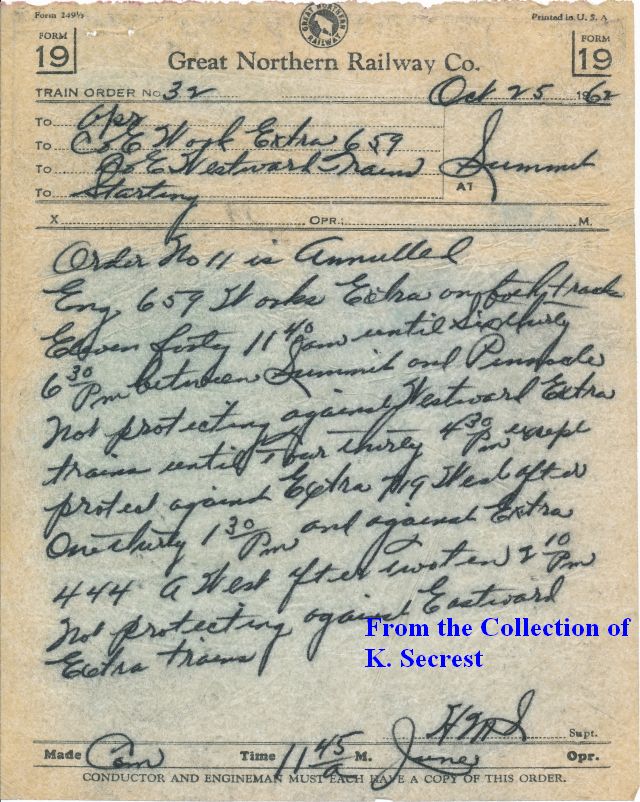 Form 249½
Printed in U. S. A
GREAT NORTHERN RAILWAY
FORM 19
FORM 19
Great Northern Railway Co.
TRAIN ORDER No. 32 Oct 25 1962
To Opr
To C&E Work Extra 659
To C&E Westward Trains
To Starting
AT Summit
X OPR.; M.
Order No 11 is Annulled
Eng 659 Works Extra on both tracks
Eleven forty 11 40 am until Six thirty
6 30 Pm between Summit and Pinnacle
Not protecting against Westward Extra
trains until Four thirty 4 30 Pm except
protect against Extra 719 West after
One thirty 1 30 Pm and against Extra
444 A West after two ten 2 10 Pm
Not protecting against Eastward
Extra trains
From the Collection of
K. Secrest
Supt.
Made Com Time 11 45 a M. June Opr.
CONDUCTOR AND ENGINEMAN MUST EACH HAVE A COPY OF THIS ORDER.